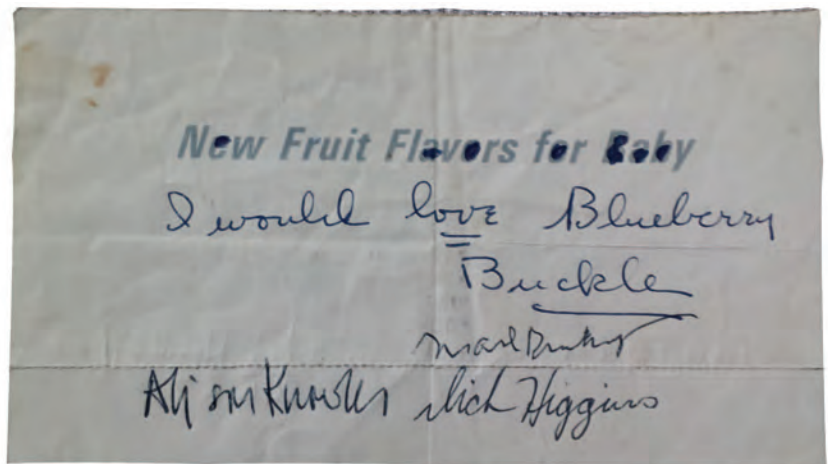 New Fruit Flavors for Baby
I would love Blueberry
Buckle
Alison Knowles Dick Higgins